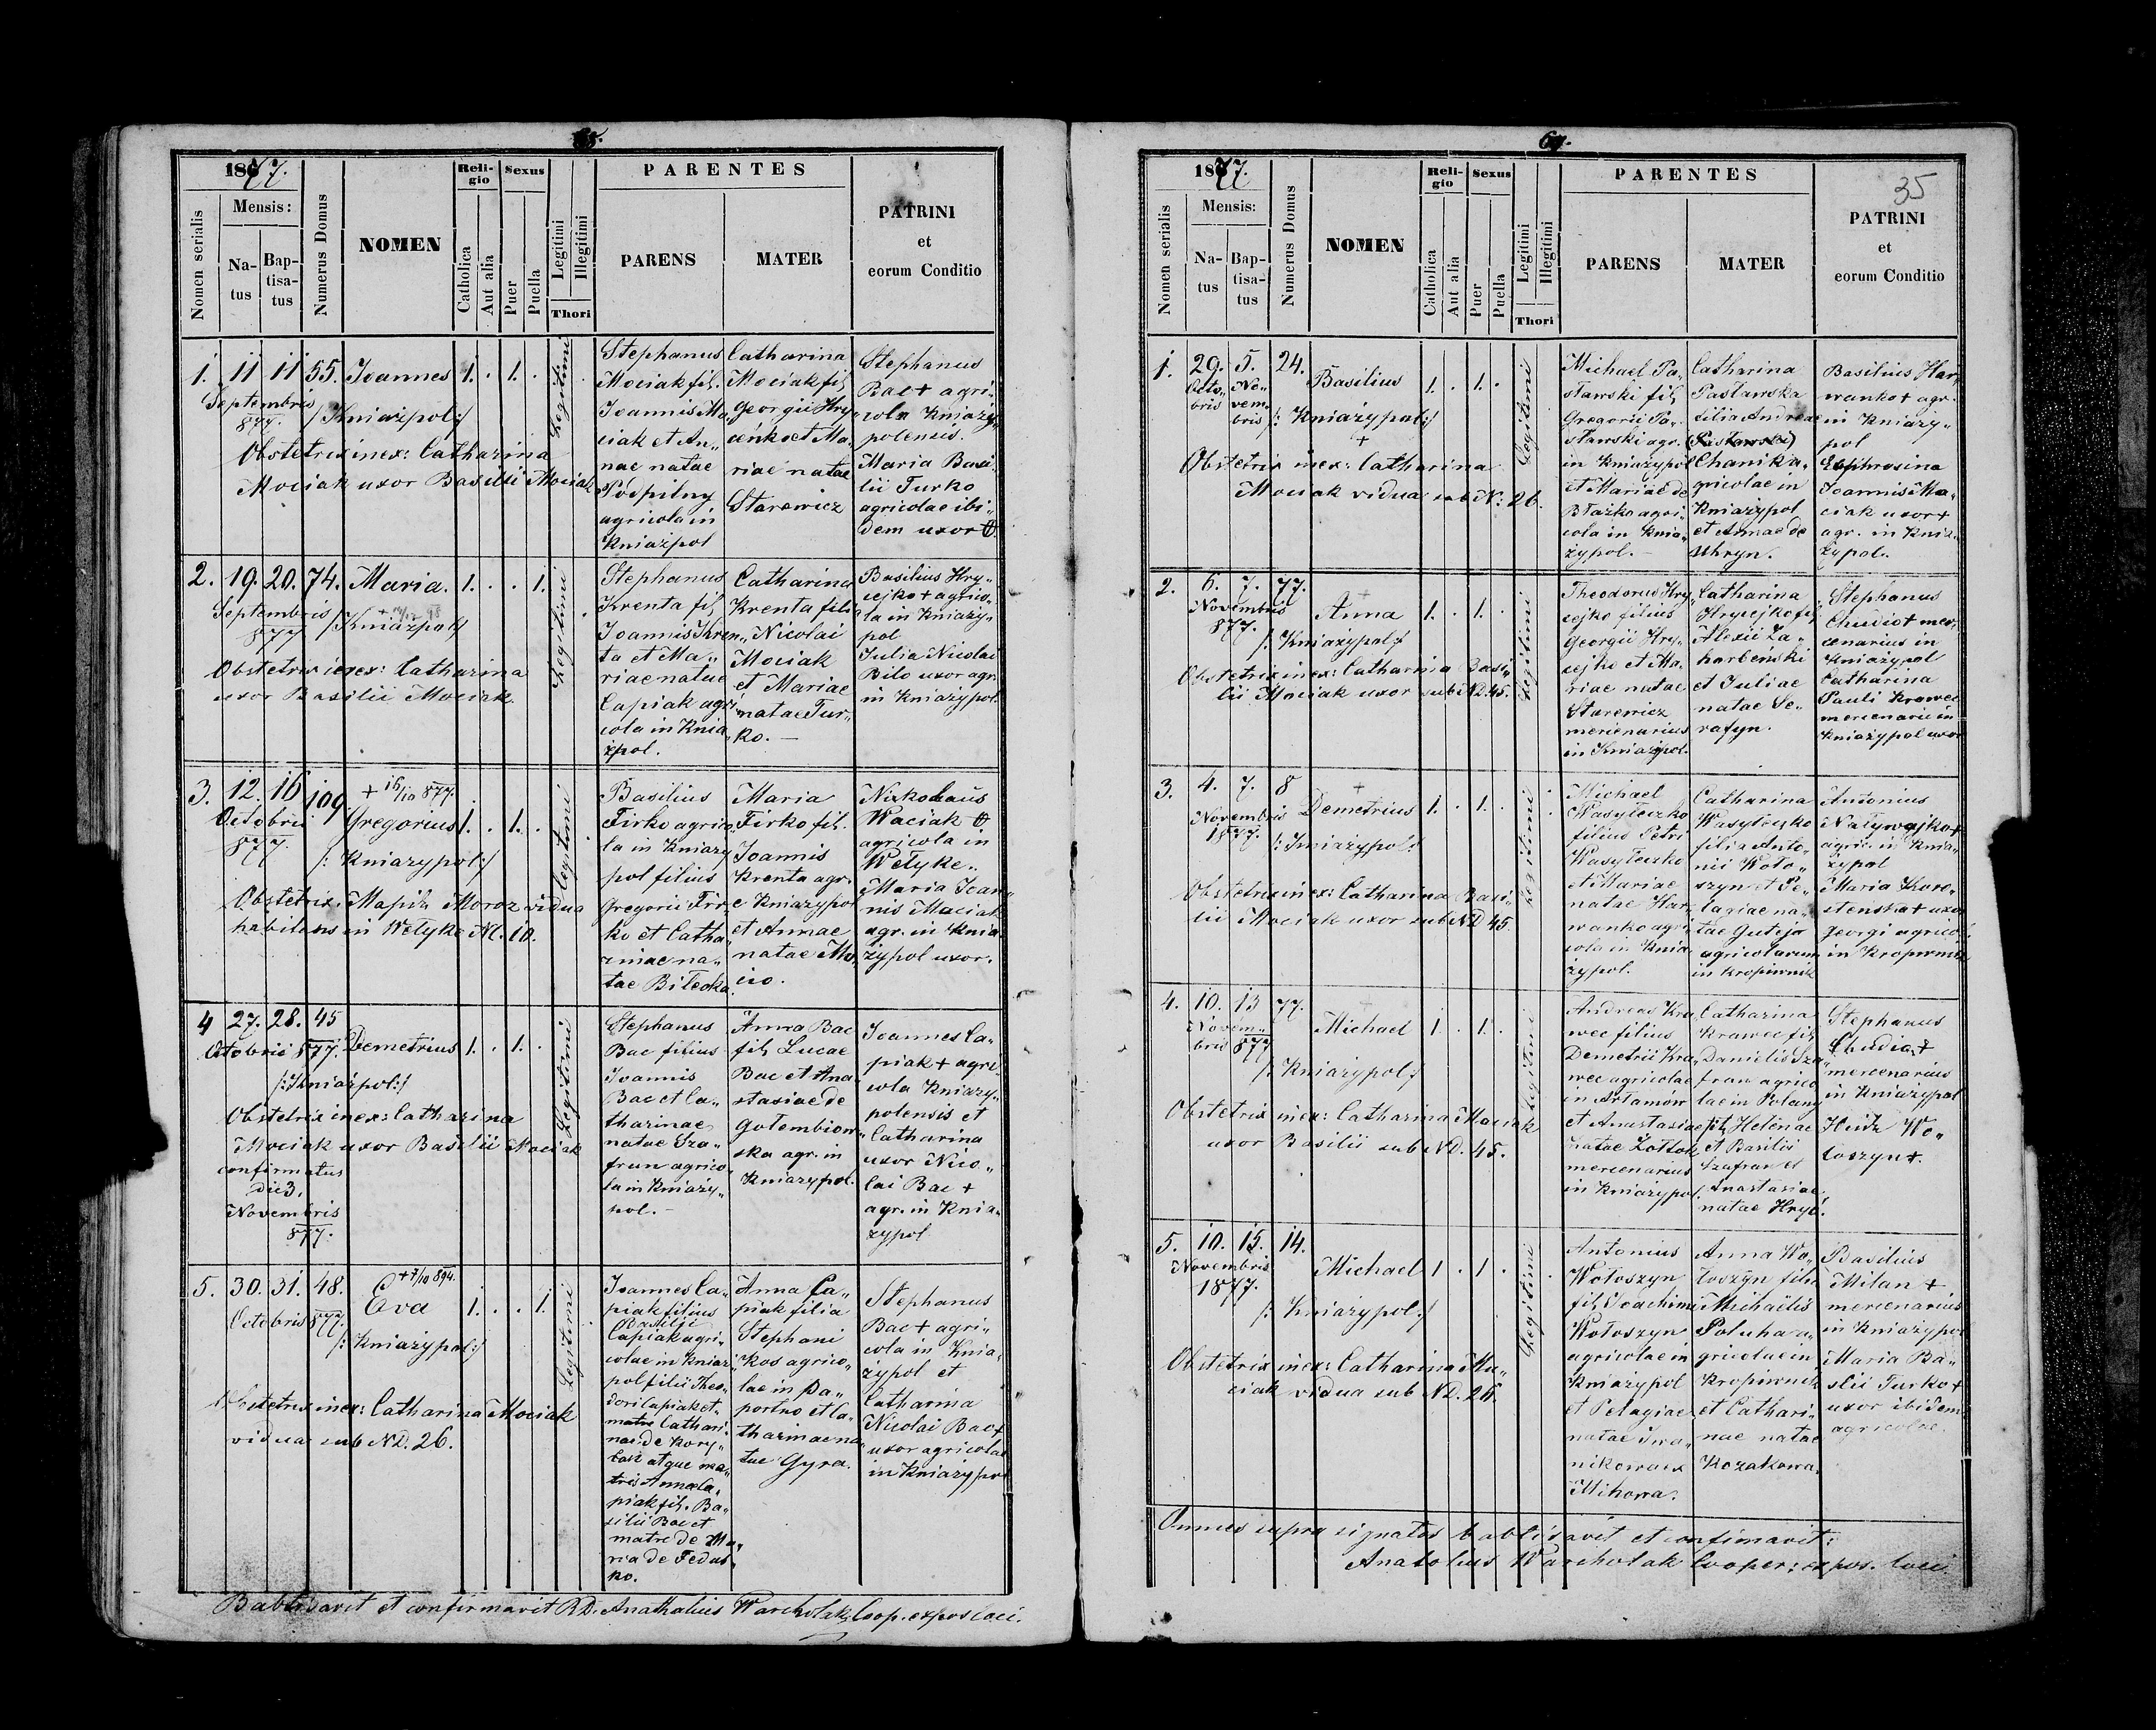 1877.
Mensis:
Nomen serialis
Na-
tus
Bap-
tisa-
tus
Numerus Domus
NOMEN
Reli-
gio
Catholica
Aut alia
Sexus
Puer
Puella
Legitimi
Illegitimi
Thori
PARENTES
PARENS
MATER
PATRINI
et
eorum Conditio
1. 11 11 55. Joannes 1. . 1. .
Septembris
877. /Kniażpol:/
Obstetrix inex: Catharina
Mociak uxor Basilii Mociak
Legitimi
Stephanus
Mociak fil.
Joannis Mo„
ciak et An„
nae natae
Podpilny
agricola in
Kniażpol
Catharina
Mociak fil
Georgii Hry
ceńko et Ma„
riae natae
Starewicz
Stephanus
Bac + agri„
cola Kniaży„
polensis.
Maria Basi„
lii Turko
agricolae ibi„
dem uxor
2. 19. 20. 74. Maria. 1. . . 1.
Septembris
877 /Kniażpol/
Obstetrix inex: Catharina
uxor Basilii Mociak.
Legitimi
Stephanus
Krenta fil
Joannis Kren„
ta et Ma„
riae natae
Capiak agri
cola in Knia„
żpol.
Catharina
Krenta filia
Nicolai
Mociak
et Mariae
natae Tur„
ko. —
Basilius Hry„
cejko + agrico„
la in Kniaży„
pol
Julia Nicolai
Bilo uxor agr.
in Kniażypol.
3. 12. 16 109 + 16/10 877.
Octobris
877. Gregorius 1. . 1. .
/: Kniażypol:/
Obstetrix Moroz vidua
habitans in Wełyke N. 10.
Legitimi
Basilius
Firko agrico„
la in Kniaży
pol filius
Gregorii Fir„
ko et Catha„
rinae na„
tae
Maria
Firko fil.
Joannis
Krenta agr.
e Kniażypol
et Annae
natae Mo„
cio.
Waciak
agricola in
Wełyke.
Maria Joan„
nis Mociak
agr. in Knia„
żypol uxor.
4 27. 28. 45
Octobris 877. Demetrius 1. . 1. .
/:Kniażpol:/
Obstetrix inex: Catharina
Mociak uxor Basilii Mociak
confirmatus
die 3.
Novembris
877.
Legitimi
Stephanus
Bac filius
Joannis
Bac et Ca„
tharinae
natae Sza„
fran agrico„
la in Kniaży„
pol. —
Anna Bac
fil Lucae
Bac et Ana„
stasiae de
Gołembiow„
ska agr. in
Kniażypol.
Joannes Ca„
piak + agri„
cola Kniaży„
polensis et
Catharina
uxor Nico„
lai Bac +
agr. in Knia„
żypol
5. 30. 31. 48. + 7/10 894.
Octobris 877. Eva 1. . . 1.
/: Kniażypol:/
Obstetrix inex: Catharina Mociak
vidua sub ND. 26.
Legitimi
Joannes Ca„
piak filius
Basilii
Capiak agri„
colae in Kniaż
pol filii Theo„
dori Capiak et
matre Cathari„
nae de Kory„
atque ma„
tris Anna Ca„
piak fil. Ba„
silii Bac et
matre de Ma„
ria de Fedus„
ko.
Anna Ca„
piak filia
Stephani
Kos agrico„
lae in Pa„
portno et Ca„
tharinae na„
tae Gyra.
Stephanus
Bac + agri„
cola in Knia„
żypol et
Catharina
Nicolai Bac +
uxor agricolae
in Kniażypol
Babtisavit et confirmavit RD. Anathalius Warchołak Coop. expos loci.
69.
35
1877.
Mensis:
Nomen serialis
Na-
tus
Bap-
tisa-
tus
Numerus Domus
NOMEN
Reli-
gio
Catholica
Aut alia
Sexus
Puer
Puella
Legitimi
Illegitimi
Thori
PARENTES
PARENS
MATER
PATRINI
et
eorum Conditio
1. 29. 5. 24. Basilius 1. . 1. .
Octo„
bris
No„
vem„
bris /: Kniażypol:/
+
Obstetrix inex: Catharina
Mociak vidua sub N: 26.
Legitimi
Michael Pa„
sławski fil
Gregorii Pa„
sławski agr.
in Kniażypol
et Mariae de
Błażko agri„
cola in Knia„
żypol. —
Catharina
Pasławska
filia Andreae
(Pasławski)
Chanik a„
gricolae in
Kniażypol
et Annae de
Uhryn.
Basilius Har„
wanko + agr.
in Kniaży„
pol
Euphrosina
Joannis Mo„
ciak uxor +
agr. in Knia„
żypol.
2. 6. 7. 77. +
Novembris
877. Anna 1. . 1. .
/: Kniażypol/
Obstetrix inex: Catharina Basi„
lii Mociak uxor sub ND. 45.
Legitimi
Theodorus Hry„
cejko filius
Georgii Hry„
cejko et Ma„
riae natae
Starewicz
mercenarius
in Kniażypol.
Catharina
Hrycejko fil
Alexii Za„
harbeński
et Juliae
natae Se„
rafyn.
Stephanus
Chudio + mer„
cenarius in
Kniażypol
Catharina
Pauli Krawec
mercenarii in
Kniażypol uxor
3. 4. 7. 8 +
Novembris
1877. Demetrius 1. . 1. .
/: Kniażypol:
Obstetrix inex: Catharina Basi„
lii Mociak uxor sub ND 45.
Legitimi
Michael
Wasyleczko
filius Petri
Wasyleczko
et Mariae
natae Har„
wanko agri„
cola in Knia„
żypol.
Catharina
Wasyleczko
filia Anto„
nii Woło„
szyn et Pe„
lagiae na„
tae Guteja
agricolarum
in Kropiwnik
Antonius
Nalywajko +
agric. in Knia„
żypol
Maria Koro„
stenska + uxor
Georgi agricol.
in Kropiwnik
4. 10. 13 77. +
Novem„
bris 877 Michael 1. . 1. .
/: Kniażypol:/
Obstetrix inex: Catharina Mociak
uxor Basilii sub ND. 45.
Legitimi
Andreas Kra„
wec filius
Demetrii Kra„
wec agricolae
in Artamów
et Anastasiae
natae Zołtok
mercenarius
in Kniażypol
Catharina
Krawec fil
Danielis Sza„
fran agrico„
lae in Polany
fil Helenae
et Basilii
Szafran et
Anastasiae
natae Hryć.
Stephanus
Chudio +
mercenarius
in Kniażypol
Wo„
łoszyn +.
5. 10. 15. 14.
Novembris
1877. Michael 1 . 1 .
/: Kniażypol:/
Obstetrix inex: Catharina Mo„
ciak vidua sub ND. 26.
Legitimi
Antonius
Wołoszyn
fil Joachimi
Wołoszyn
agricolae in
Kniażypol
et Pelagiae
natae Iwa„
Mihowa.
Anna Wo„
łoszyn filia
Michaëlis
Poluha a„
gricolae in
Kropiwnik
et Cathari„
nae natae
Kozakowa.
Basilius
Milan +
mercenarius
in Kniażypol
Maria Ba„
slii Turko +
uxor ibidem
agricolae.
Omnes supra signatos babtisavit et confimavit:
Anatolius Warchołak Cooper: expos. loci.